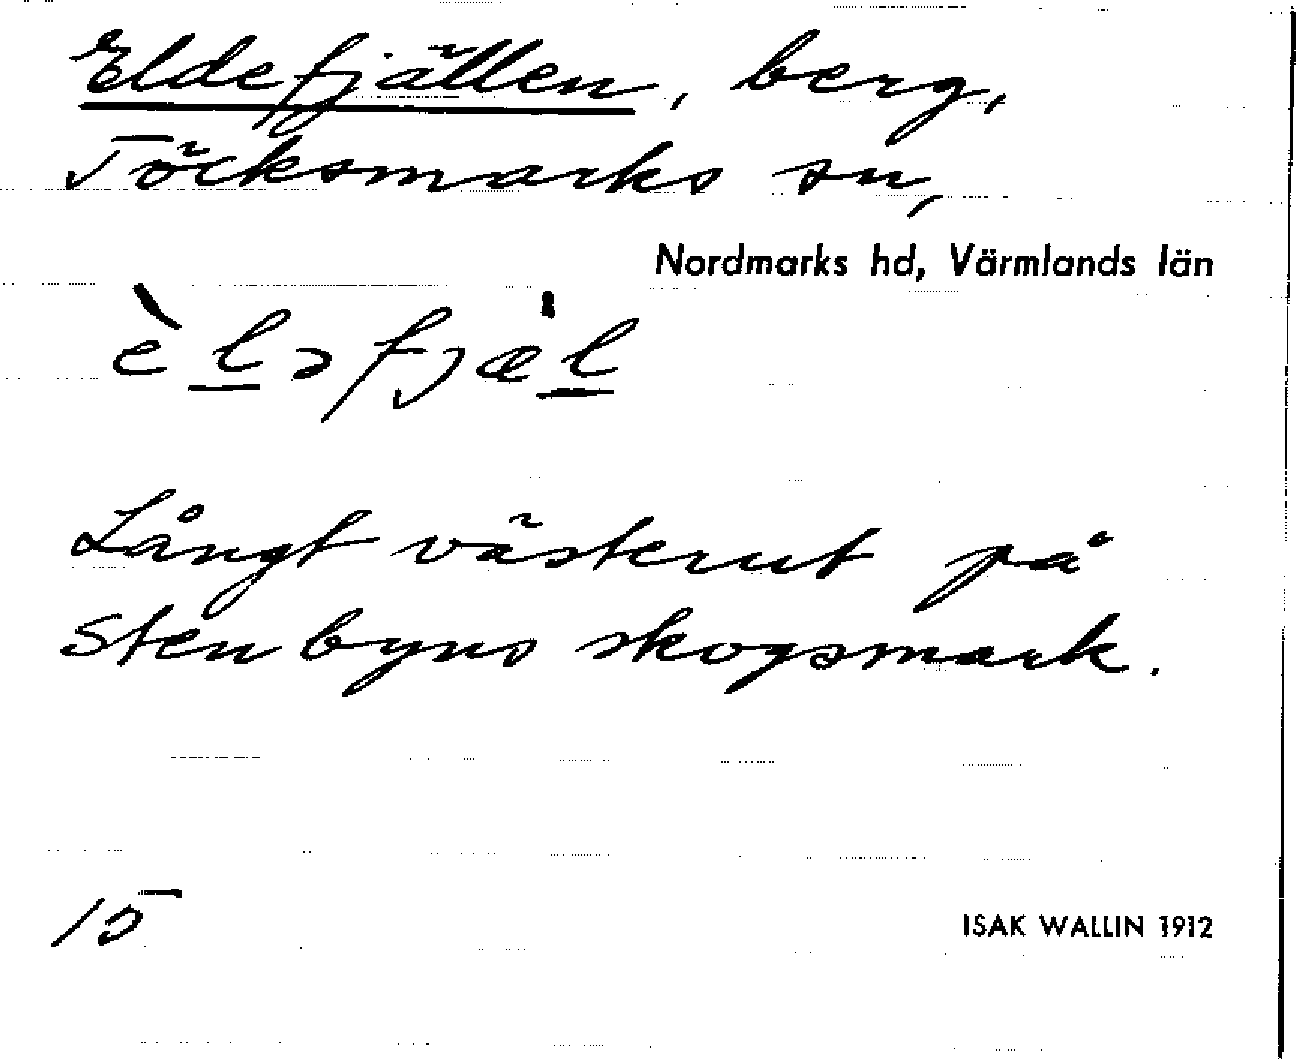 Eldefjällen, berg,
Töcksmarks sn,
Nordmarks hd, Värmlands län
èl̲əfjæ̍l̲
Långt västerut på
Stenbyns skogsmark.
15
ISAK WALLIN 1912